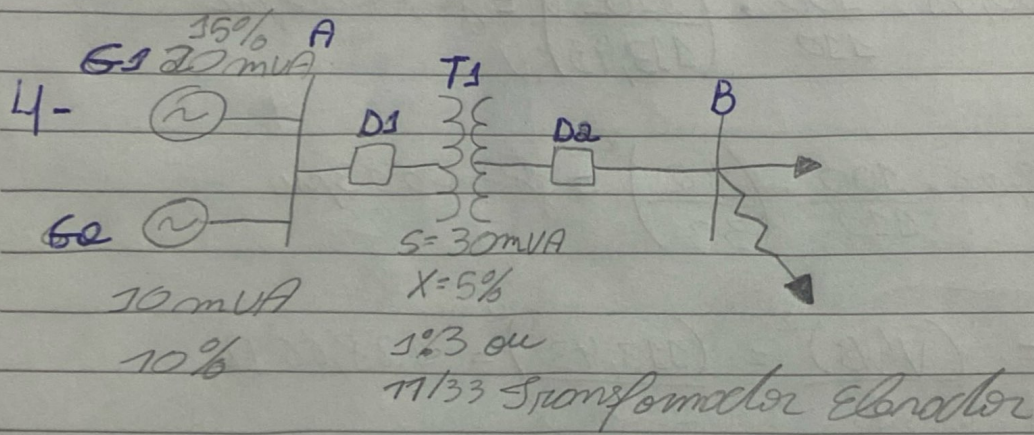 15% A
G1 20 mVA T1
4- D1 D2 B
G2 S= 30mVA
10 mVA X= 5%
10% 1:3 ou
11/33 Transformador Elevador